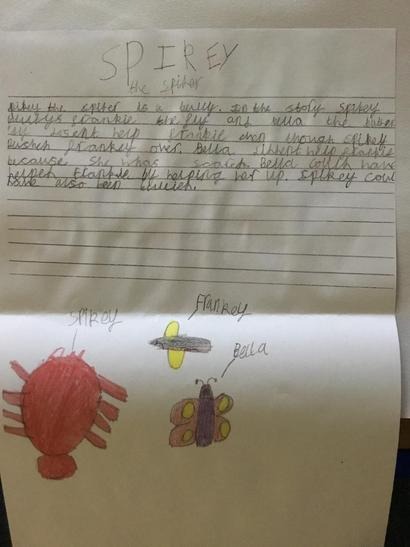 SPIREY
the spiter
spikey the spiter is a bully. In the story spikey
bullys frankie the fly and bella the
fly dosent help frankie even though spikey
pushed frankey over. Bella dident help frankie
because she was scared. Bella could have
helped frankie by helping her up. spikey coul
have also been
spikey
Frankey
Bella